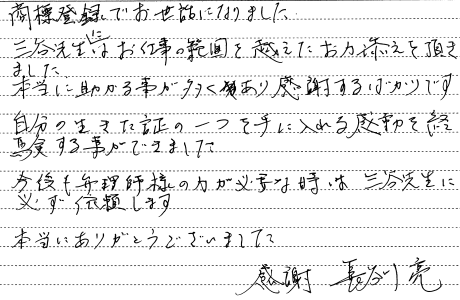 商標登録でお世話になりました
三谷先生にはお仕事の範囲を越えたお力添えを頂き
ました
本当に助かる事が多くあり感謝するばかりです
自分の生きた証の一つを手に入れる感動を経
験する事ができました
今後も弁理師様の力が必要な時は三谷先生に
必ず依頼します
本当にありがとうございました
感謝 長谷川 亮